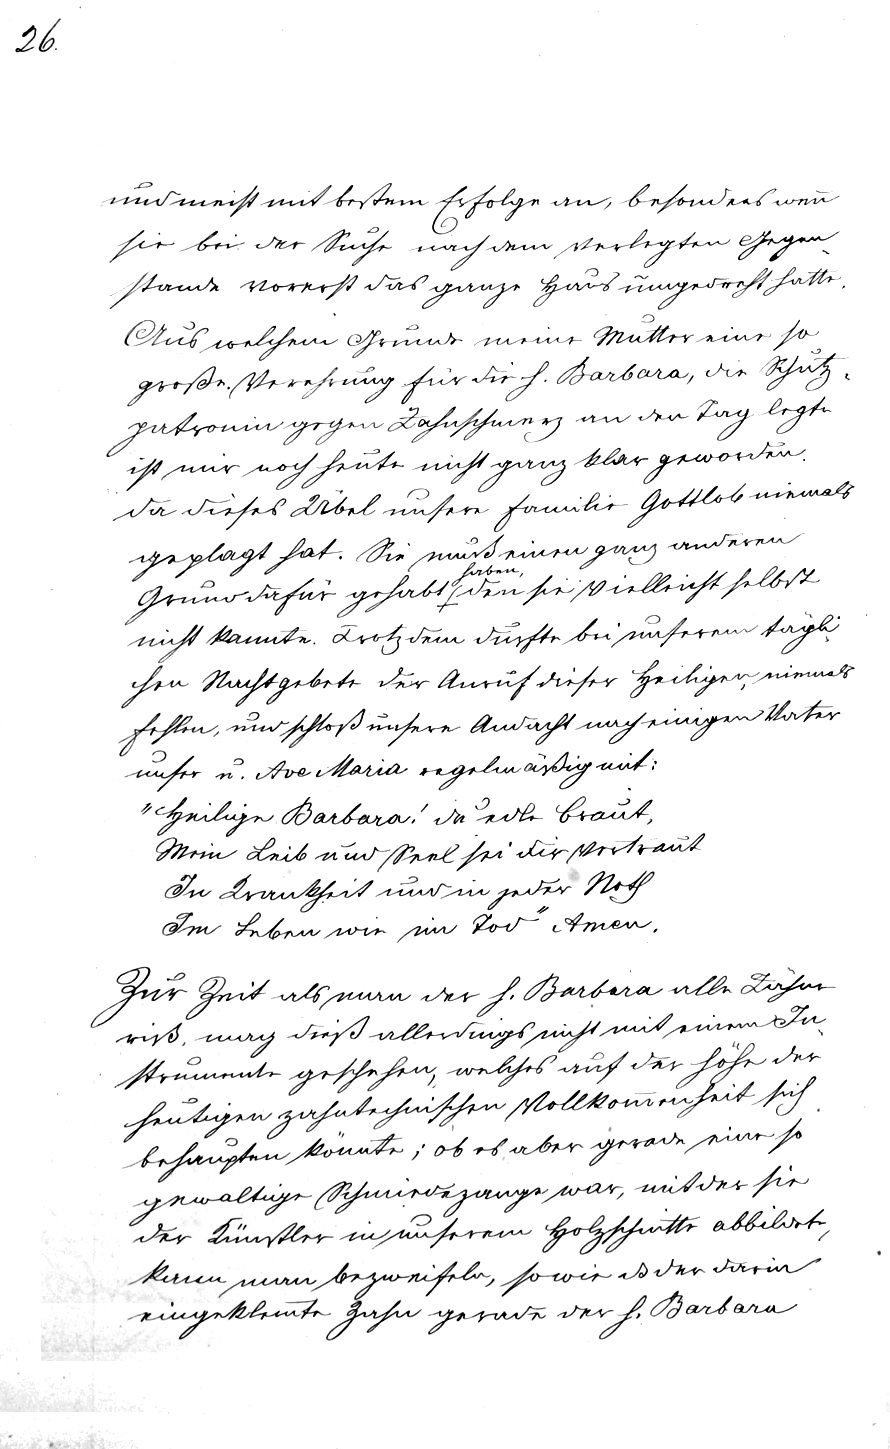 26.
und meist mit bestem Erfolge an, besonders wen̄
sie bei der Suche nach dem verlegten Gegen-
stande vorerst das ganze Haus umgedreht hatte.
Aus welchem Grunde meine Mutter eine so
große Verehrung für die h. Barbara, die Schutz-
patronin gegen Zahnschmerz an den Tag legte
ist mir noch heute nicht ganz klar geworden.
da dieses Übel unsere Familie Gottlob niemals
geplagt hat. Sie muß einen ganz anderen
haben,
Grund dafür gehabt den sie vielleicht selbst
nicht kannte. Trotzdem durfte bei unserem tägli-
chen Nachtgebete der Anruf dieser Heiligen, niemals
fehlen, und schloß unsere Andacht nach einigen Vater
unser u. Ave Maria regelmäßig mit:
"Heilige Barbara! du edle Braut,
Mein Leib und Seel sei dir vertraut
In Krankheit und in jeder Noth
Im Leben wie im Tod" Amen.
Zur Zeit als man der h. Barbara alle Zähne
riß, mag dieß allerdings nicht mit einem In-
strumente geschehen, welches auf der Höhe der
heutigen zahntechnischen Vollkom̄enheit sich
behaupten könnte; ob es aber gerade eine so
gewaltige Schmiedezange war, mit der sie
der Künstler in unserem Holzschnitte abbildete,
kann man bezweifeln, sowie ds der darin
eingeklem̄te Zahn gerade der h. Barbara